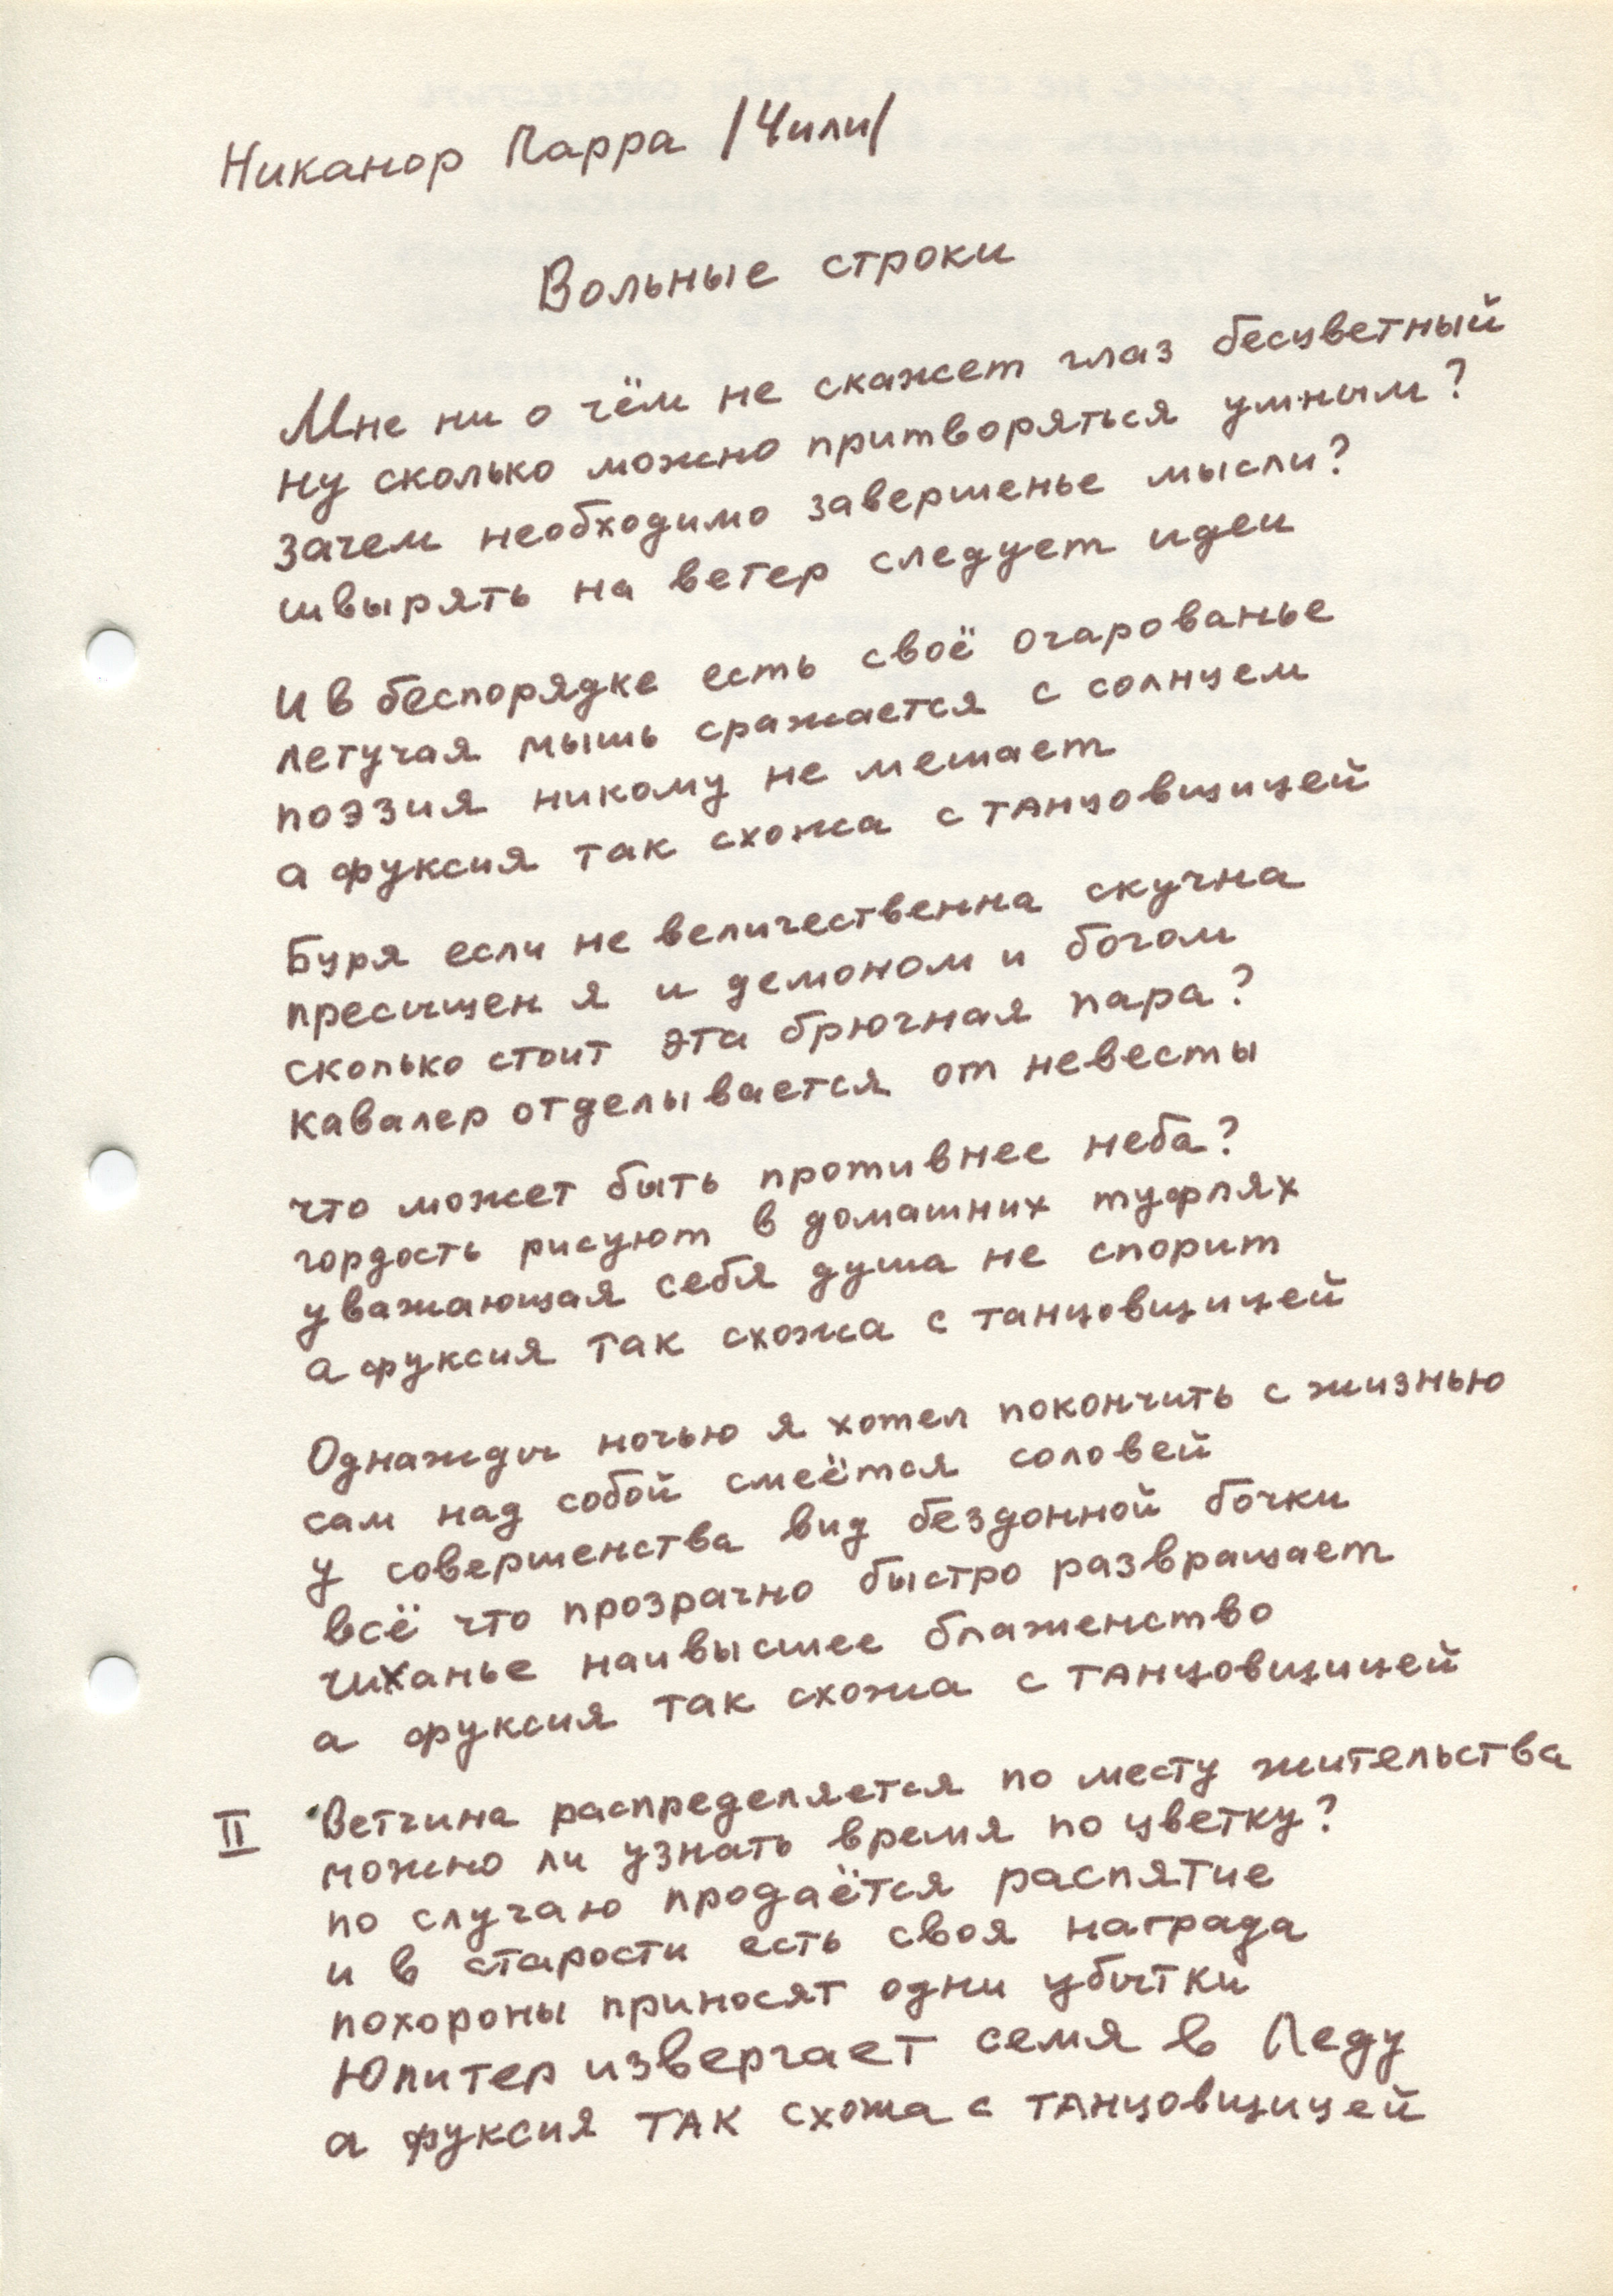 Никанор Парра /Чили/
Вольные строки
Мне ни о чём не скажет глаз бесцветный
ну сколько можно притворяться умным?
зачем необходимо завершенье мысли?
швырять на ветер следует идеи
И в беспорядке есть своё очарованье
летучая мышь сражается с солнцем
поэзия никому не мешает
а фуксия так схожа с танцовщицей
Буря если не величественна скучна
пресыщен я и демоном и богом
сколько стоит эта брючная пара?
кавалер отделывается от невесты
что может быть противнее неба?
гордость рисуют в домашних туфлях
уважающая себя душа не спорит
а фуксия так схожа с танцовщицей
Однажды ночью я хотел покончить с жизнью
сам над собой смеётся соловей
у совершенства вид бездонной бочки
всё что прозрачно быстро развращает
чиханье наивысшее блаженство
а фуксия так схожа с танцовщицей
II Ветчина распределяется по месту жительства
можно ли узнать время по цветку?
по случаю продаётся распятие
и в старости есть своя награда
похороны приносят одни убытки
Юпитер извергает семя в Леду
а фуксия так схожа с танцовщицей